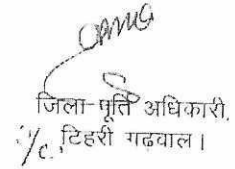 जिला-पूर्ति अधिकारी,
टिहरी गढवाल।